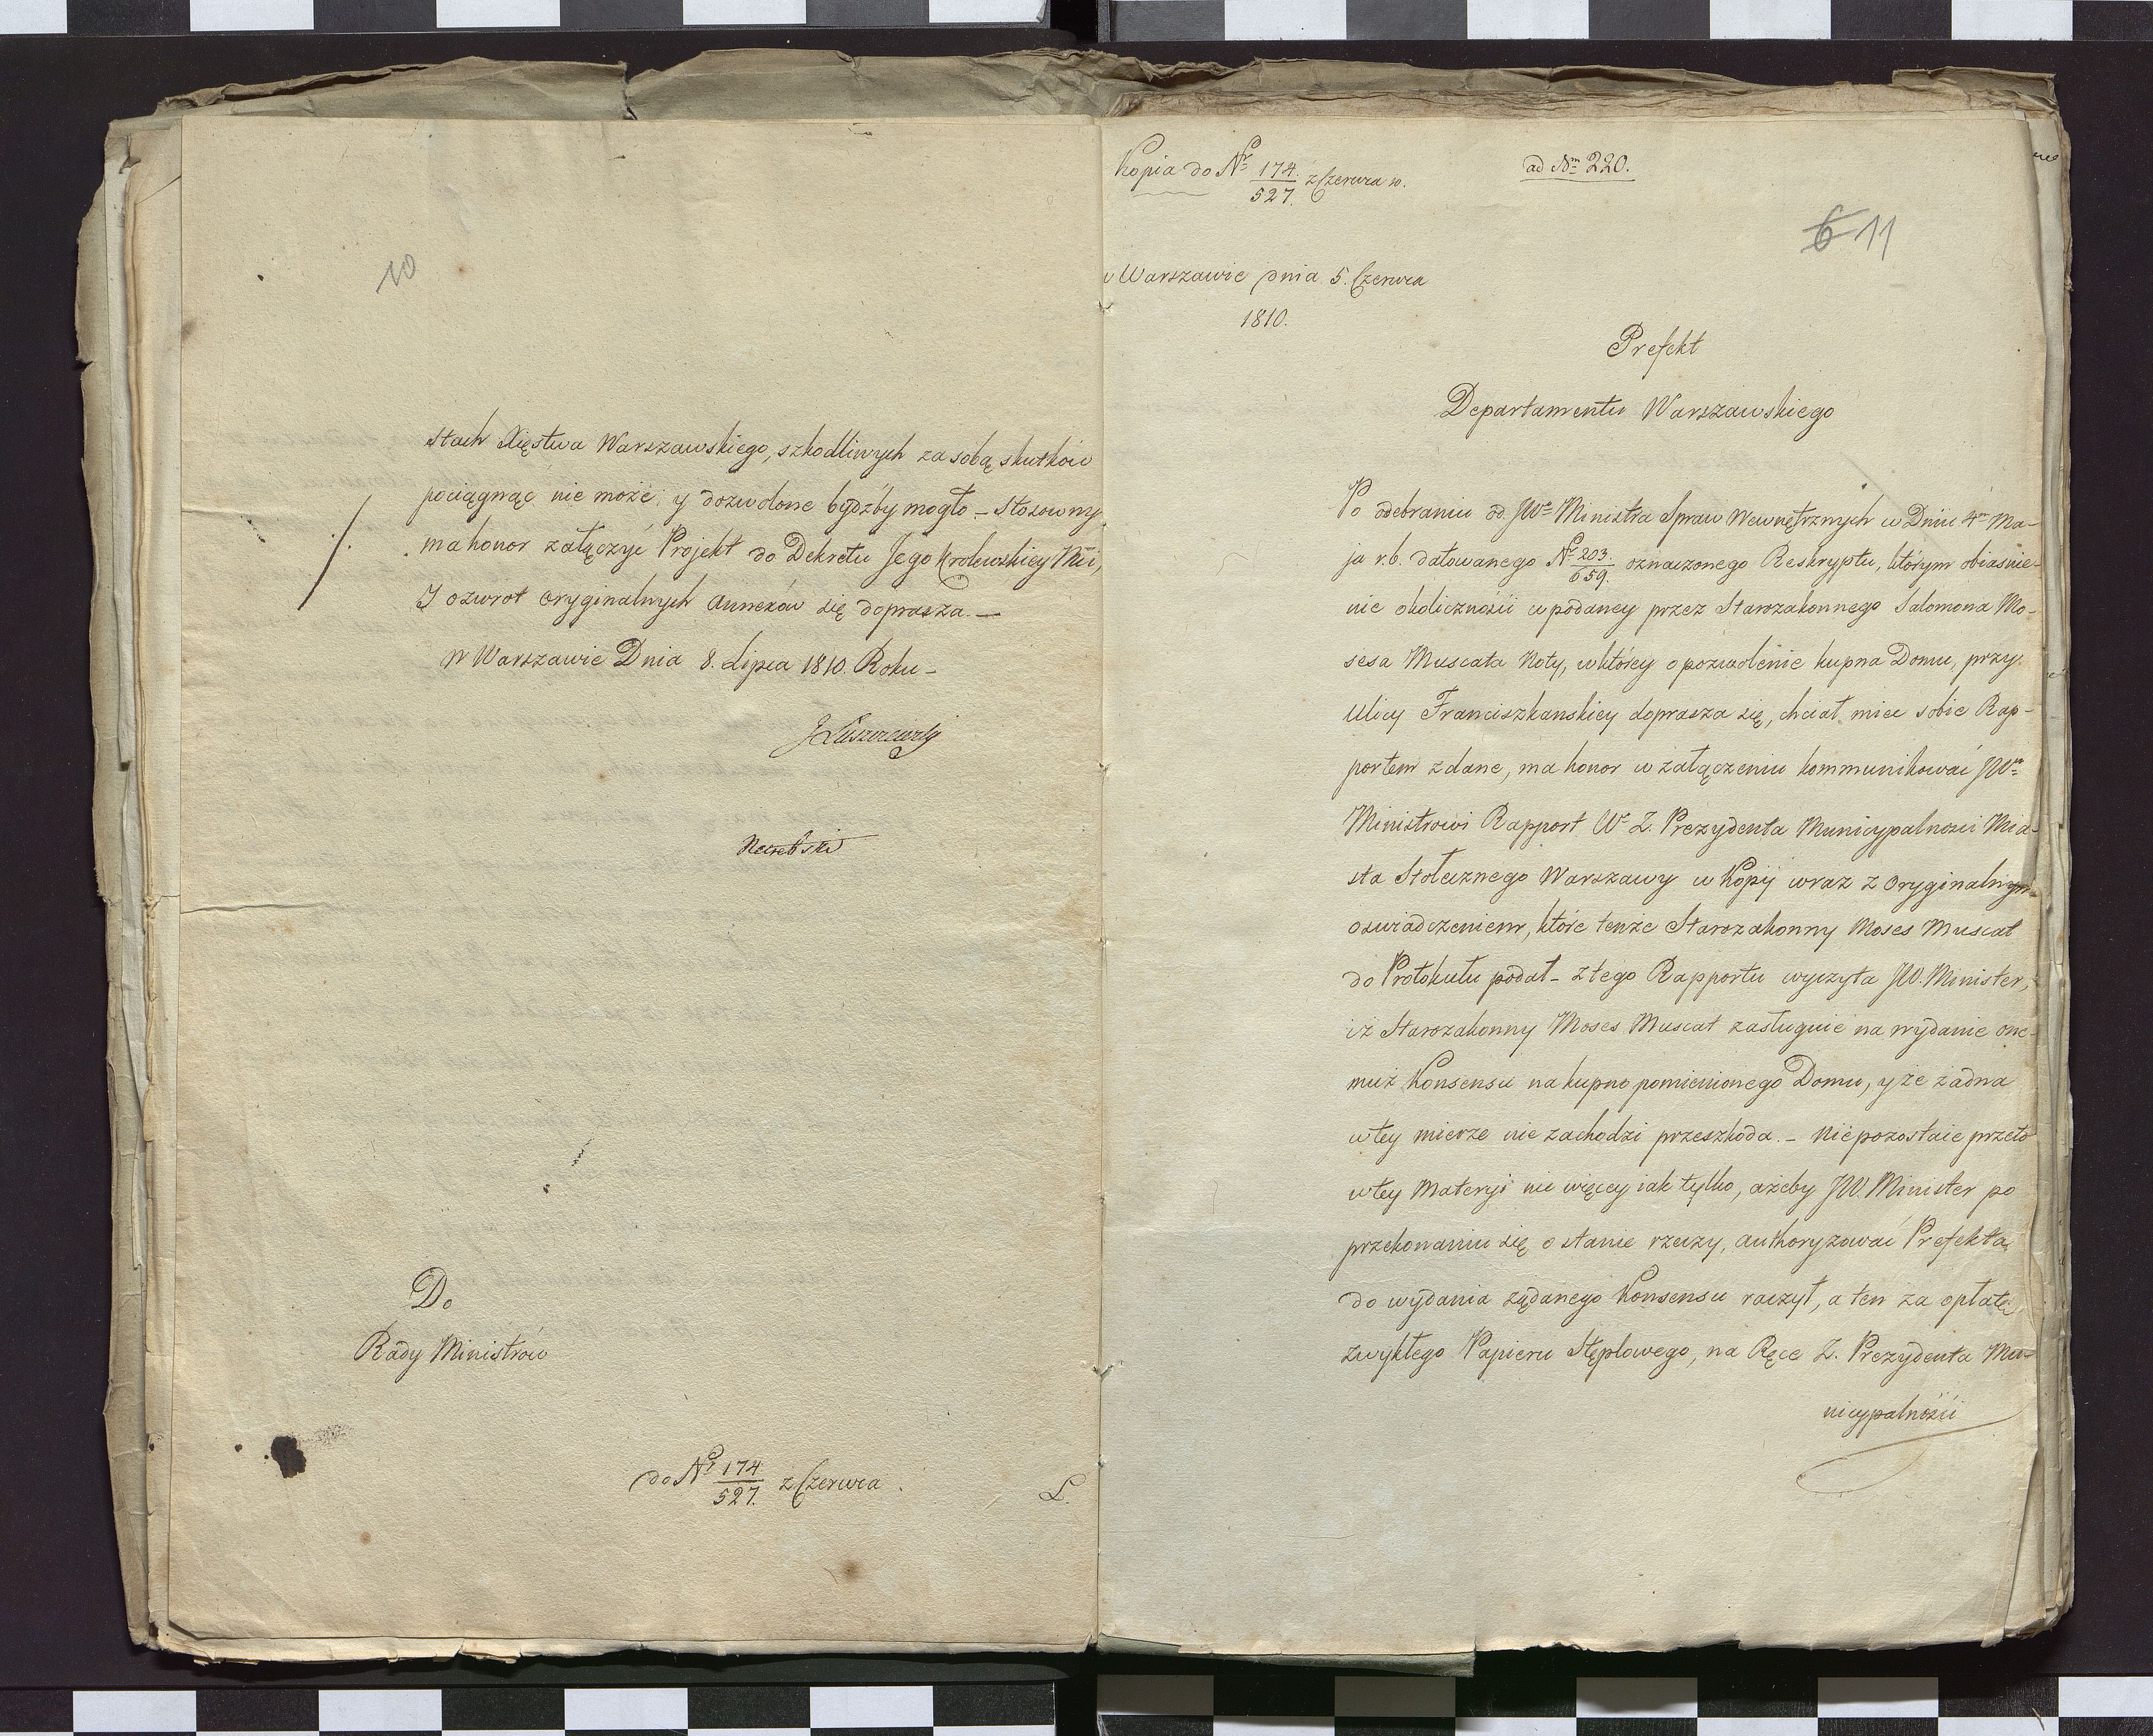 10
stach Xięstwa Warszawskiego, szkodliwych za sobą skutków
pociągnąć nie może, y dozwolone bydźby mogło – Stosowny
ma honor załączyć Projekt do Dekretu Jego Krolewskiey Mci,
I ozwrot Oryginalnych Annexów się doprasza. –
w Warszawie Dnia 8. Lipca 1810. Roku –
J Łuszczewski
Do
Rady Ministrów
do Nr 174/527. z Czerwca.
L.
Kopia do Nr 174./527. z Czerwca w.
ad Nm 220.
6 11
w Warszawie dnia 5. Czerwca
1810.
Prefekt
Departamentu Warszawskiego
Po odebraniu od JWo Ministra Spraw Wewnętrznych w Dniu 4m Ma-
ja r.b. datowanego Nr 203./659. oznaczonego Reskryptu, którym obiasnie-
nie okoliczności w podaney przez Starozakonnego Salomona Mo-
sesa Muscata Noty, w którey o pozwolenie kupna Domu, przy
Ulicy Franciszkanskiey doprasza się, chciał miec sobie Rap-
portem zdane, ma honor w załączeniu kommunikować JWm
Ministrowi Rapport Wo Z. Prezydenta Municypalnosci Mia-
sta Stołecznego Warszawy w Kopij wraz z Oryginalnym
oswiadczeniem, które tenże Starozakonny Moses Muscat
do Protokułu podał – z tego Rapportu wyczyta JW. Minister,
iż Starozakonny Moses Muscat zasługuie na wydanie one-
muż Konsensu na kupno pomienionego Domu, y że żadna
w tey mierze nie zachodzi przeszkoda. – Niepozostaie przeto
w tey Materyi nic więcey iak tylko, ażeby JW. Minister po
przekonaniu się o stanie rzeczy, authoryzować Prefekta
do wydania żądanego Konsensu raczył, a ten za opłatą
zwykłego Papieru Stęplowego, na Ręce Z. Prezydenta Mu-
nicypalności